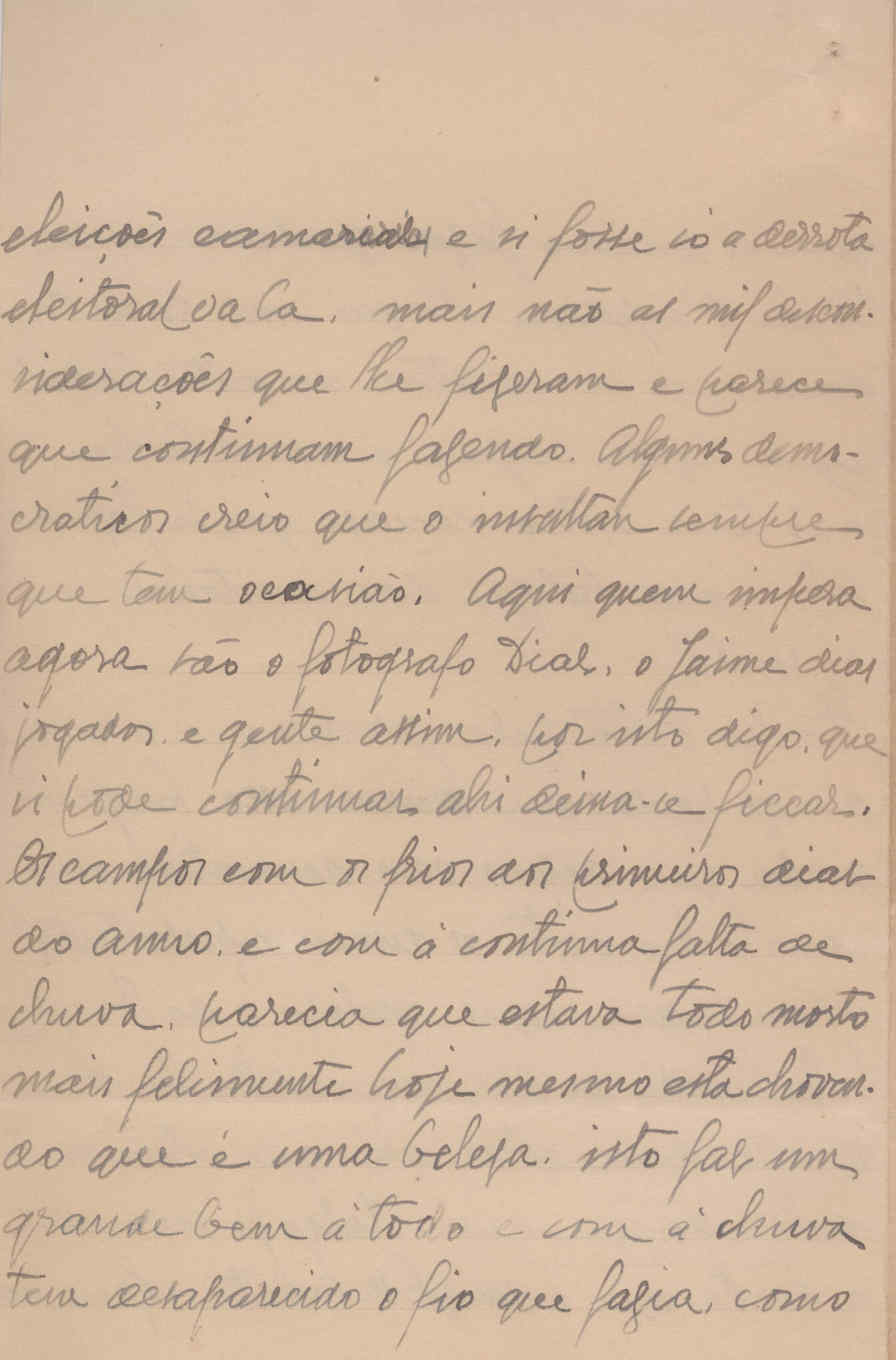 eleições camariais e si fosse só a derrota
eleitoral va la. mais não as mil descon-
siderações que lhe fizeram e parece
que continuam fazendo. Alguns demo-
craticos creio que o insultan sempre
que tem ocasião. Aqui quem impera
agora são o fotografo Dias, o Jaime dias
jogador, e gente assim, por isto digo, que
si pode continuar ahi deixa-se ficcar.
Os campos com os frios dos primeiros dias
do anno, e com á continua falta de
chuva, parecia que estava todo morto
mais felizmente hoje mesmo está choven-
do que é uma beleza. isto faz um
grande bem á todo e com á chuva
tem desaparecido o fio que fazia, como